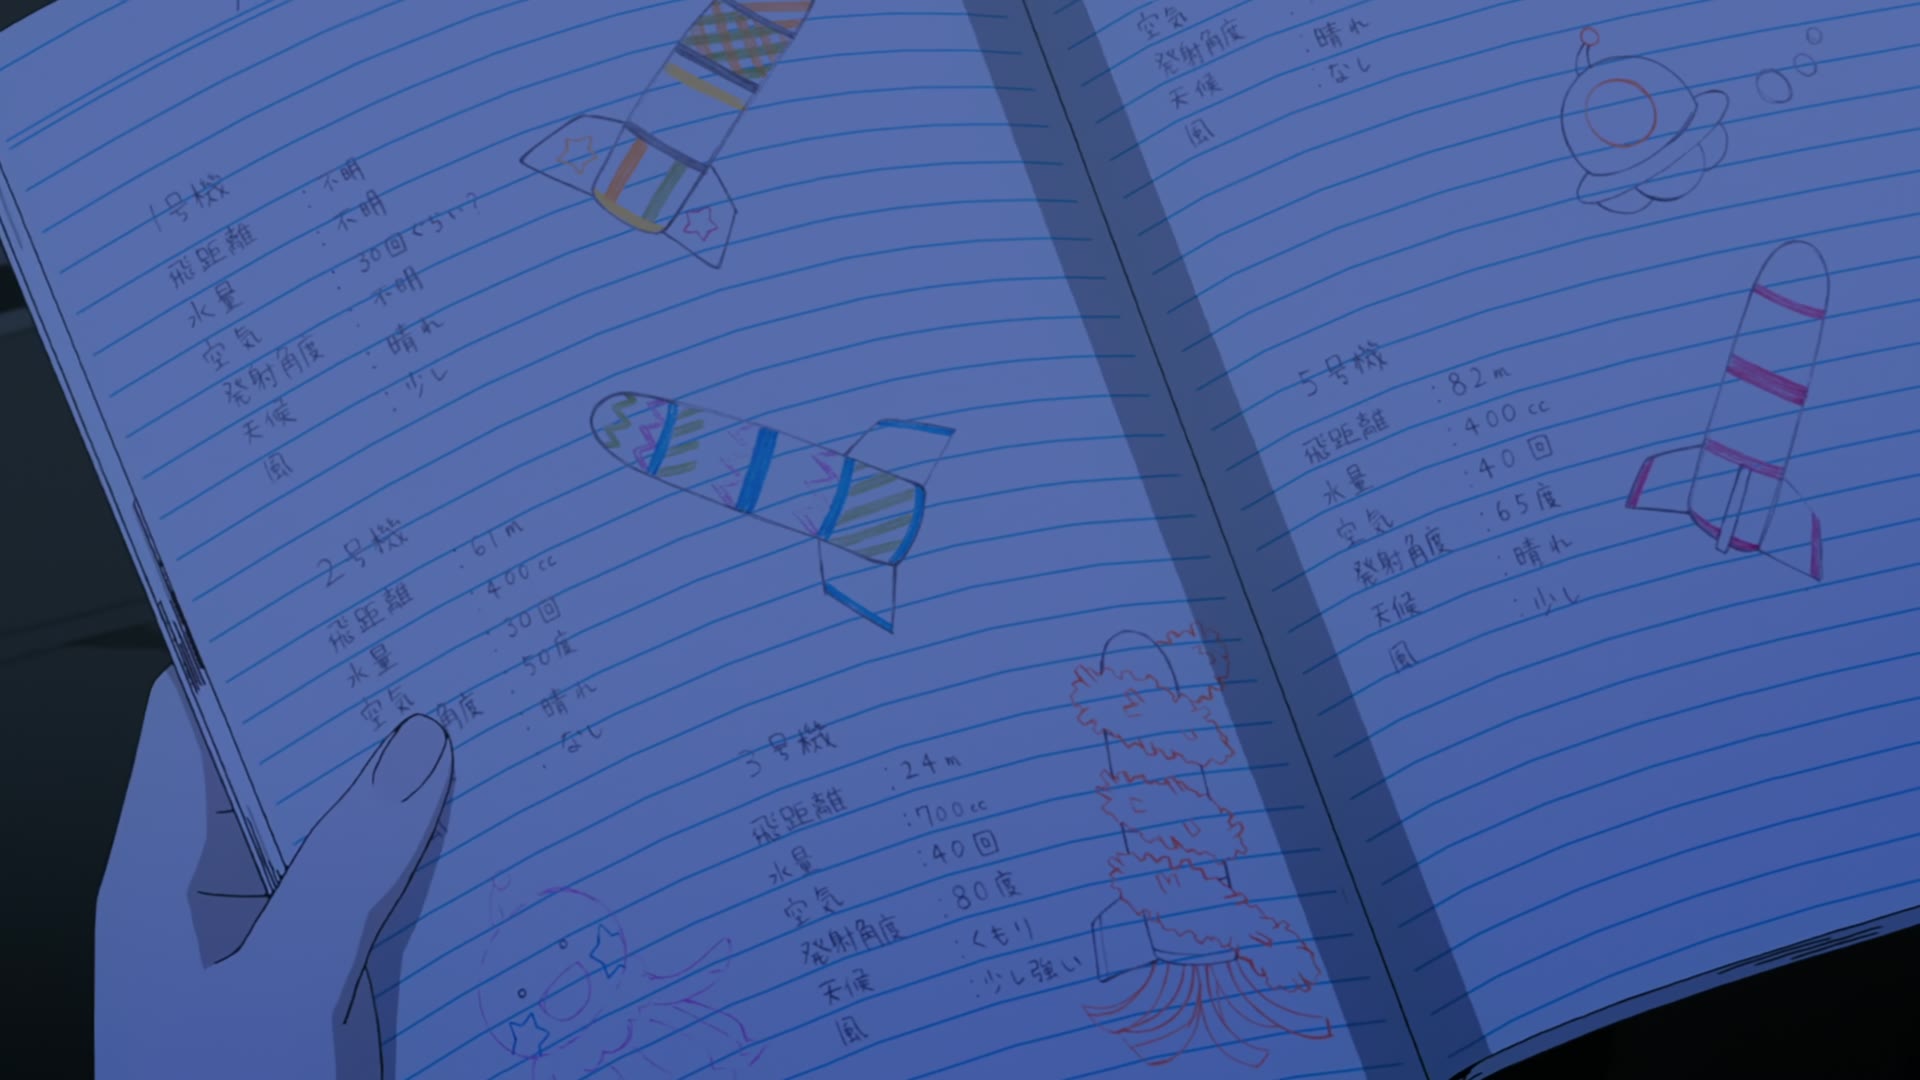 1号機
飛距離 : 不明
水量 : 不明
空気 : 30回くらい?
発射角度 : 不明
天候 : 晴れ
風 : 少し
2号機
飛距離 : 61m
水量 : 400cc
空気 : 30回
角度 : 50度
: 晴れ
: なし
3号機
飛距離 : 24m
水量 : 700cc
空気 : 40回
発射角度 : 80度
天候 : くもり
風 : 少し強い
空気
発射角度 :
天候 : 晴れ
風 : なし
5号機
飛距離 : 82m
水量 : 400cc
空気 : 40回
発射角度 : 65度
天候 : 晴れ
風 : 少し